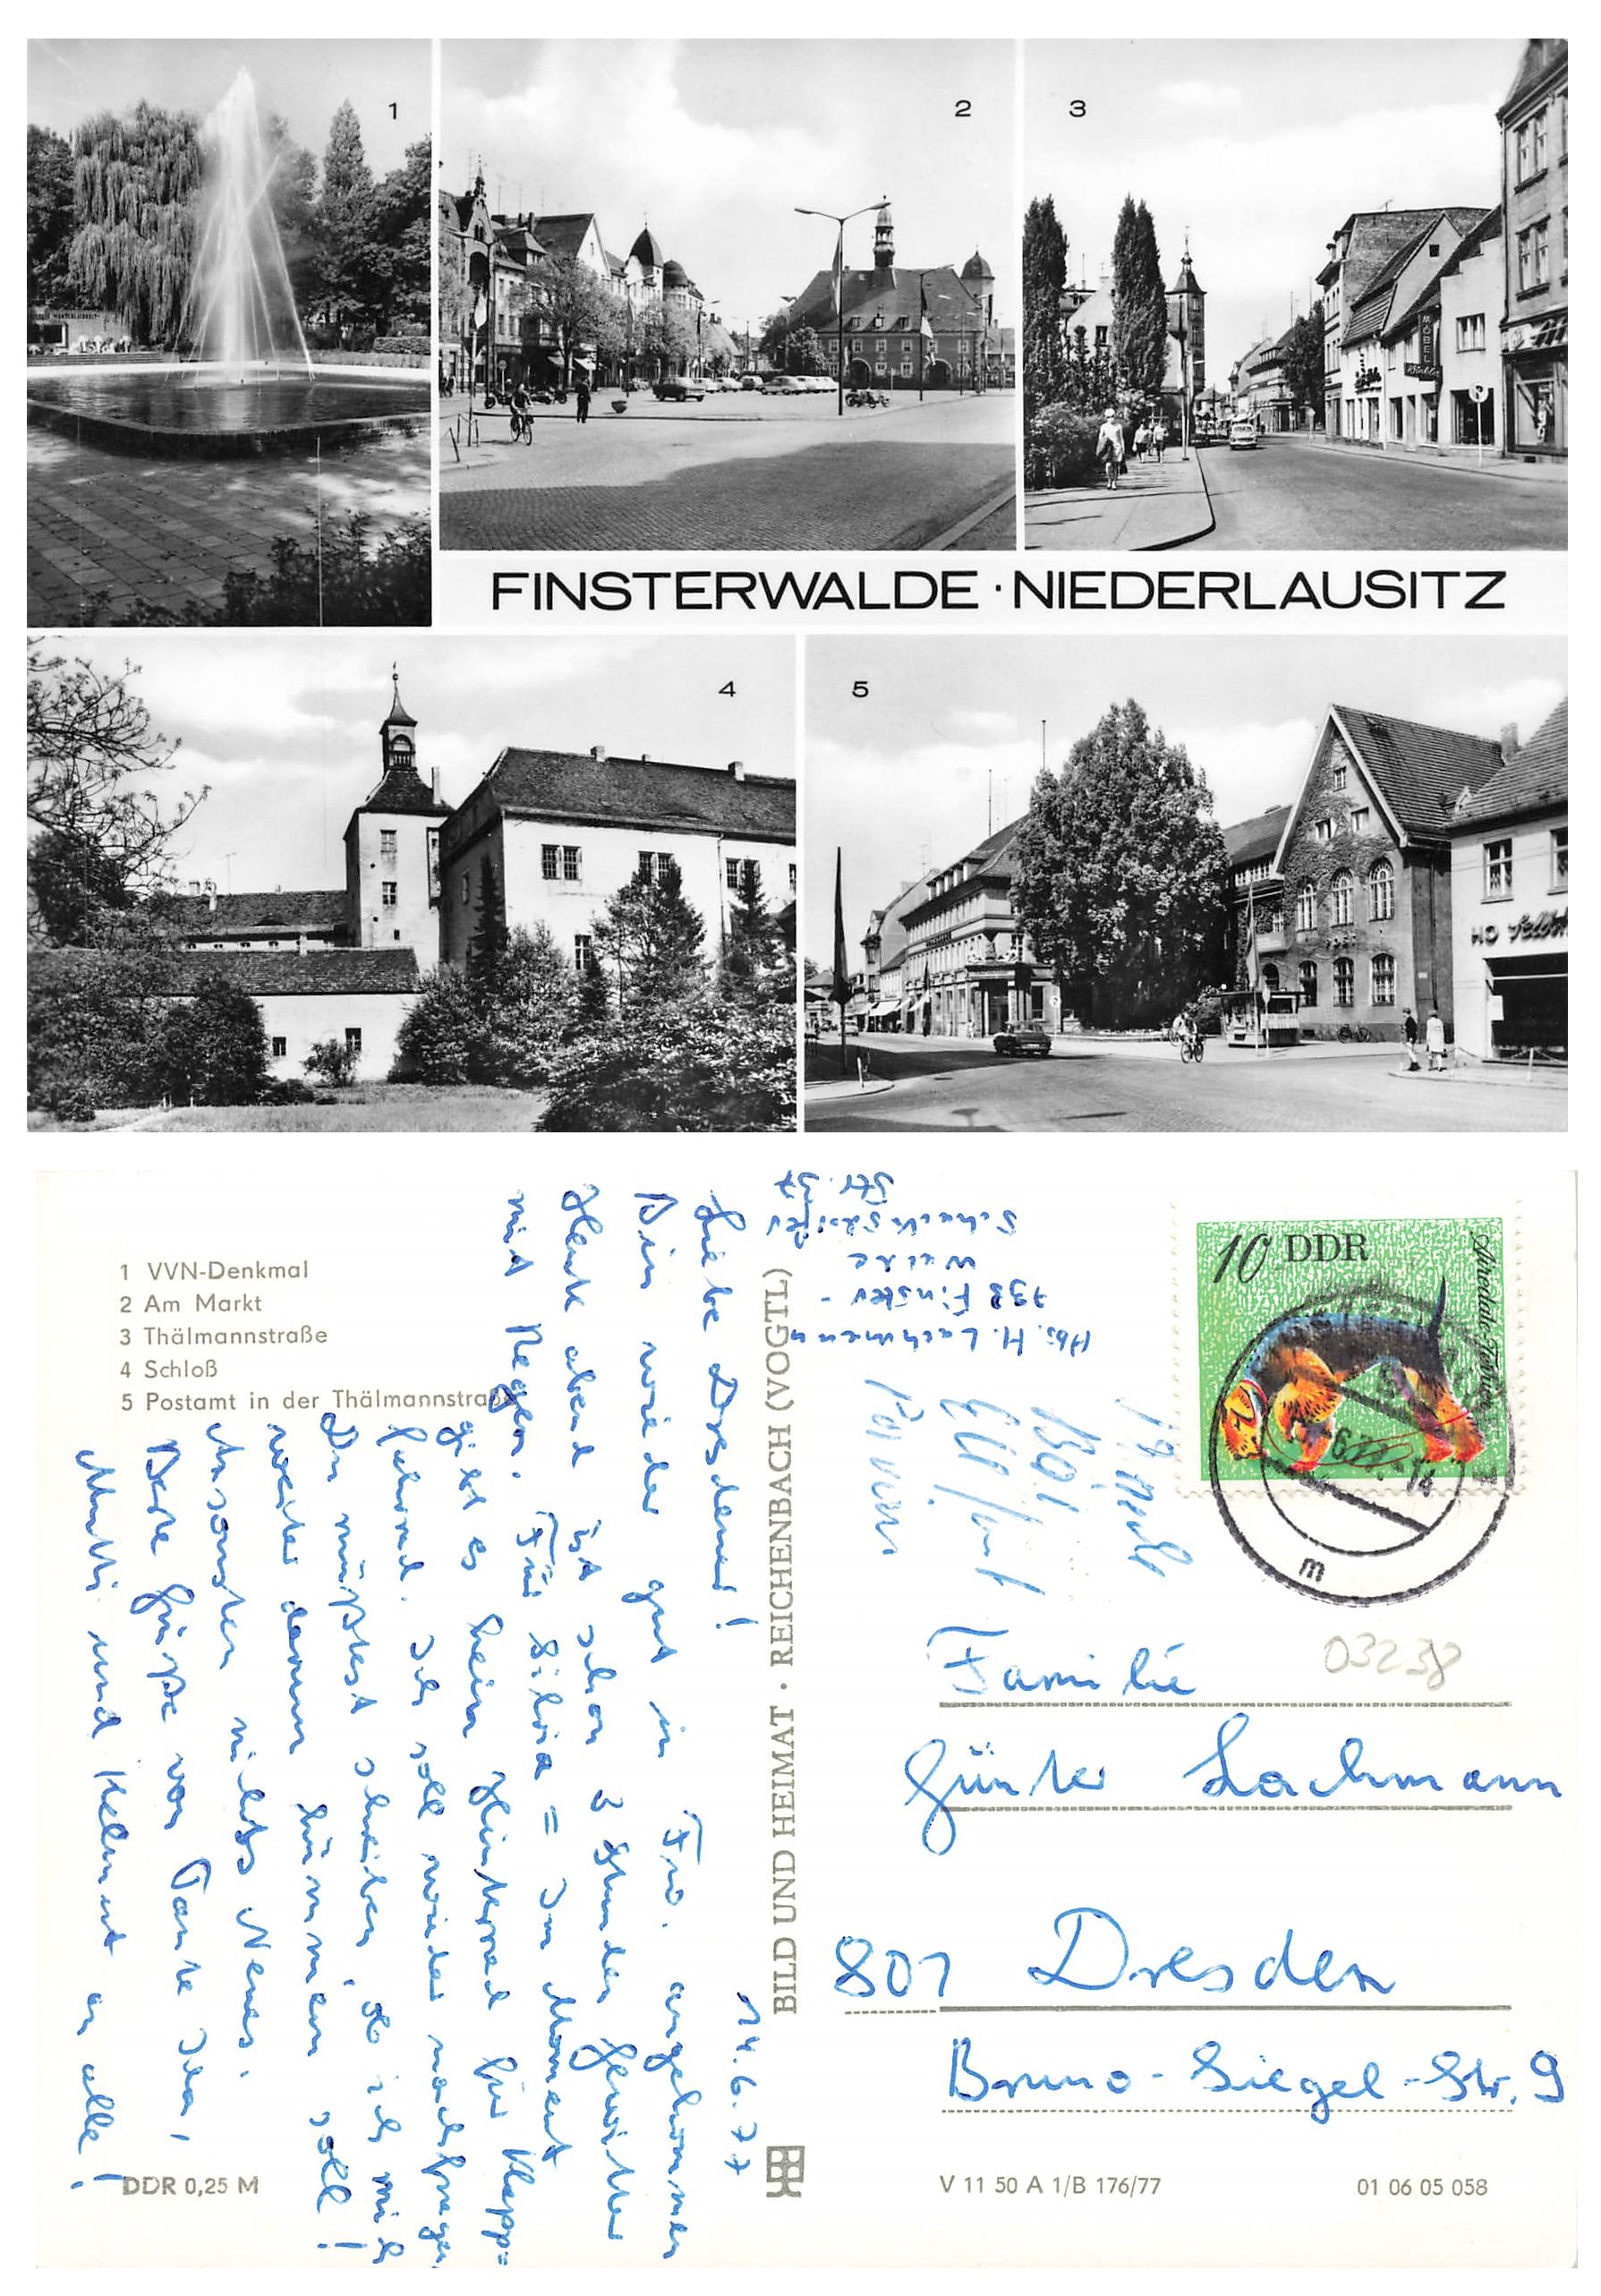 1
2
3
MÖBEL
FINSTERWALDE · NIEDERLAUSITZ
4
5
POST
HO
1 VVN-Denkmal
2 Am Markt
3 Thälmannstraße
4 Schloß
5 Postamt in der Thälmannstraße
14.6.77
Liebe Dresdener!
Bin wieder gut in Fiwa. angekommen
Heute abend ist schon 3 Stunden Gewitter
mit Regen. Für Silvia = Im Moment
gibt es kein Hinterrad für Klapp=
fahrrad. Ich soll wieder nachfragen.
Du müßtest schreiben, ob ich mich
weiter darum kümmern soll!
Ansonsten nichts Neues.
Beste Grüße von Tante Ida,
Mutti und Helmut an alle!
DDR 0,25 M
BILD UND HEIMAT · REICHENBACH (VOGTL)
Abs. H. Lachmann
798 Finster-
walde
Schacksdorfer
Str. 57
10 DDR
Airedale-Terrier
m
03238
Familie
Günter Lachmann
801 Dresden
Bruno-Siegel-Str. 9
V 11 50 A 1/B 176/77
01 06 05 058